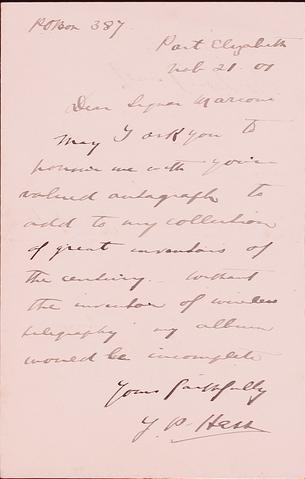 PO Box 387
Port Elizabeth
Feb 21. 01
Dear Signor Marconi
May I ask you to
honour me with your
valued autograph to
add to my collection
of great inventors of
the century. Without
the inventor of wireless
telegraphy my album
would be incomplete
Yours faithfully
P. Hass